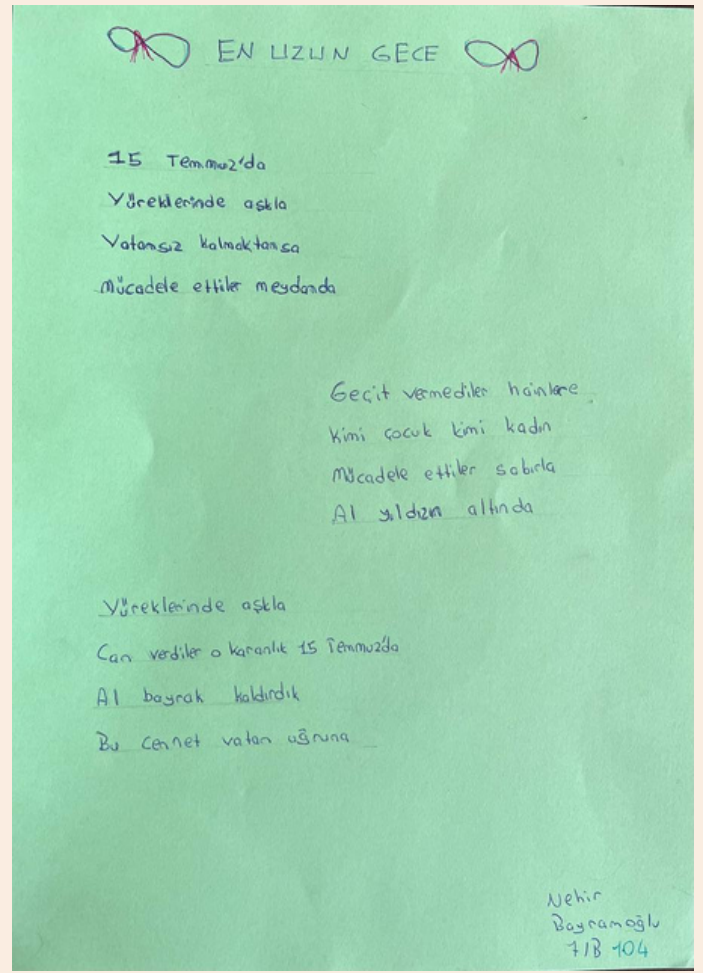 EN UZUN GECE
15 Temmuz'da
Yüreklerinde aşkla
Vatansız kalmaktansa
Mücadele ettiler meydanda
Geçit vermediler hainlere
Kimi çocuk kimi kadın
Mücadele ettiler sabırla
Al yıldızın altında
Yüreklerinde aşkla
Can verdiler o karanlık 15 Temmuz'da
Al bayrak kaldırdık
Bu cennet vatan uğruna
Nehir
Bayramoğlu
7/B 104